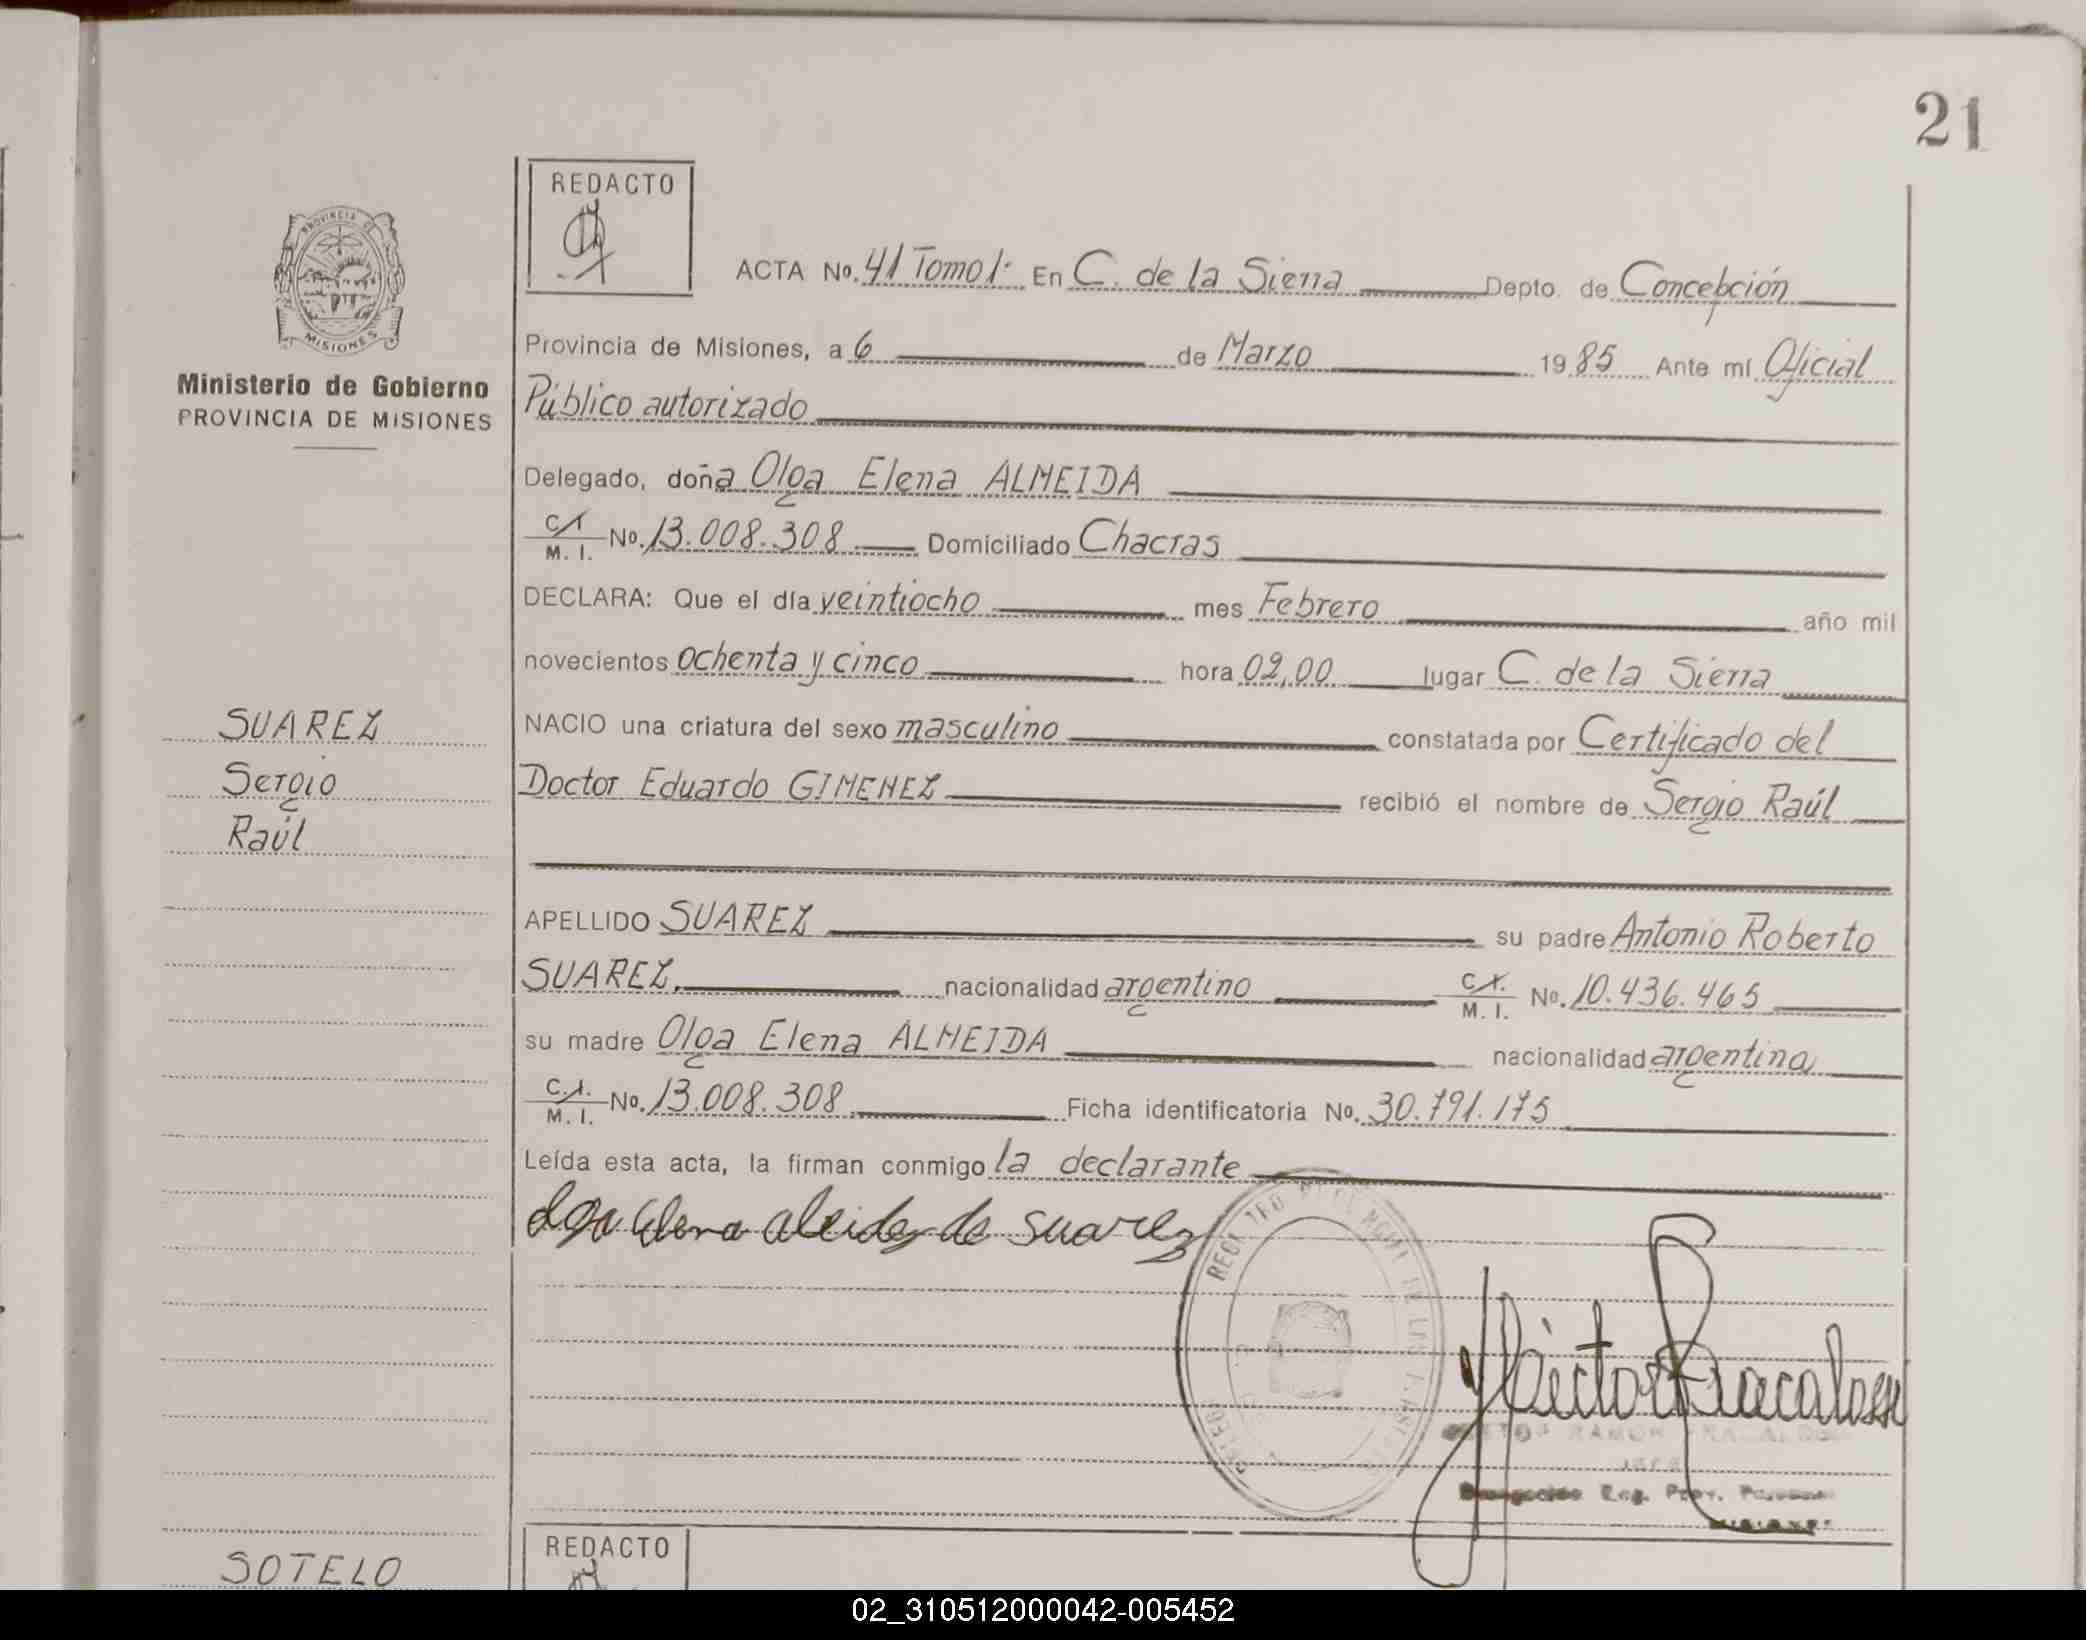 21
REDACTO
PROVINCIA DE
MISIONES
Ministerio de Gobierno
PROVINCIA DE MISIONES
ACTA No. 41 Tomo 1: En C. de la Sierra Depto. de Concepción
Provincia de Misiones, a 6 de Marzo 1985 Ante mí Oficial
Público autorizado
Delegado, doña Olga Elena ALMEIDA
C.I. M. I. No. 13.008.308 Domiciliado Chacras
DECLARA: Que el día veintiocho mes Febrero año mil
novecientos ochenta y cinco hora 02,00 lugar C. de la Sierra
NACIO una criatura del sexo masculino constatada por Certificado del
Doctor Eduardo GIMENEZ recibió el nombre de Sergio Raúl
SUAREZ
Sergio
Raúl
APELLIDO SUAREZ su padre Antonio Roberto
SUAREZ. nacionalidad argentino C.I. M. I. No. 10.436.465
su madre Olga Elena ALMEIDA nacionalidad argentina
C.I. M. I. No. 13.008.308 Ficha identificatoria No. 30.791.175
Leída esta acta, la firman conmigo la declarante
Elena de suarez
Hector
RAMON
Reg. Prov.
MISIONES
REDACTO
SOTELO
02_310512000042-005452